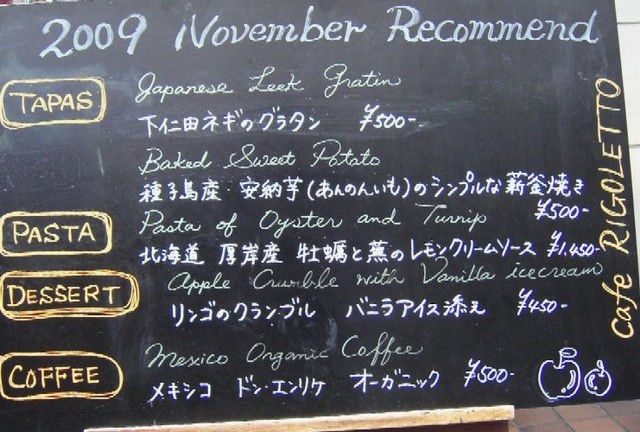 2009 November Recommend
TAPAS
Japanese Leek Gratin
下仁田ネギのグラタン ¥500-
Baked Sweet Potato
種子島産・安納芋(あんのんいも)のシンプルな薪釜焼き
¥500-
PASTA
Pasta of Oyster and Turnip
北海道 厚岸産 牡蠣と蕪のレモンクリームソース ¥1,450-
DESSERT
Apple Crumble with Vanilla icecream
リンゴのクランブル バニラアイス添え ¥450-
COFFEE
Mexico Organic Coffee
メキシコ ドン・エンリケ オーガニック ¥500-
Cafe RIGOLETTO